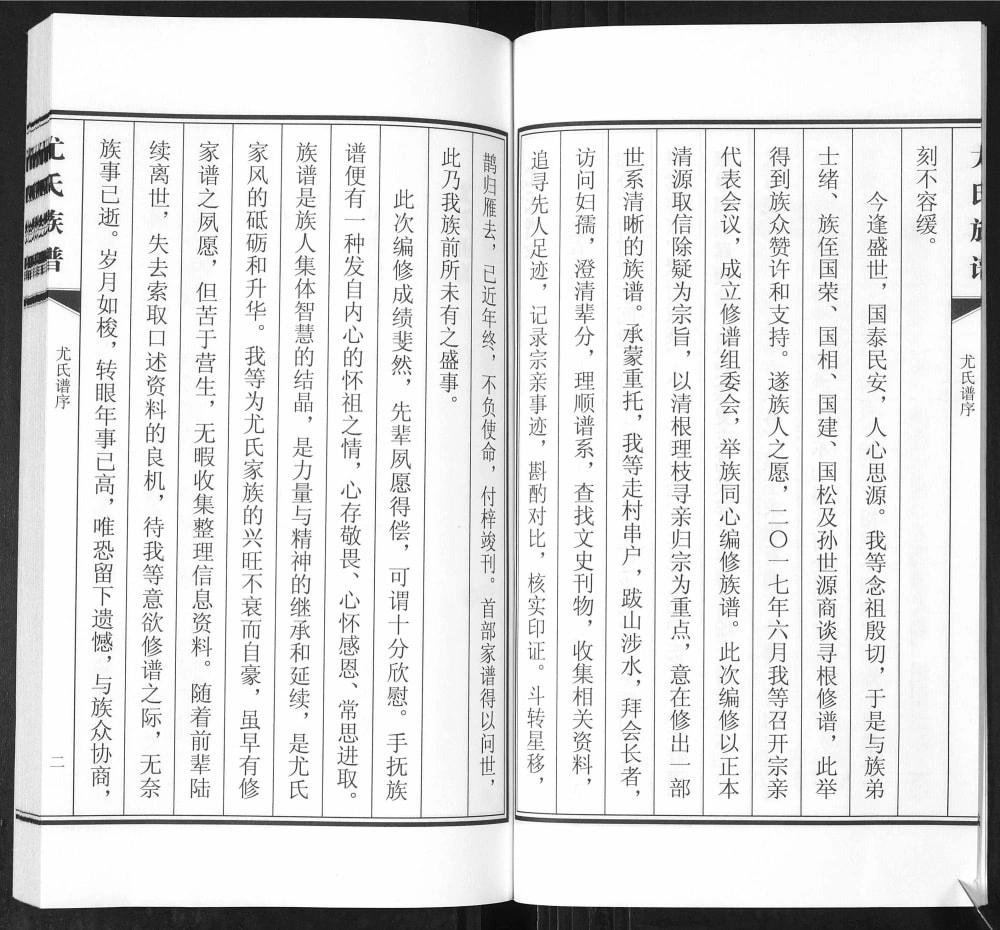 尤氏族谱
尤氏谱序
刻不容缓。
今逢盛世，国泰民安，人心思源。我等念祖殷切，于是与族弟
士绪、族侄国荣、国相、国建、国松及孙世源商谈寻根修谱，此举
得到族众赞许和支持。遂族人之愿，二〇一七年六月我等召开宗亲
代表会议，成立修谱组委会，举族同心编修族谱。此次编修以正本
清源取信除疑为宗旨，以清根理枝寻亲归宗为重点，意在修出一部
世系清晰的族谱。承蒙重托，我等走村串户，跋山涉水，拜会长者，
访问妇孺，澄清辈分，理顺谱系，查找文史刊物，收集相关资料，
追寻先人足迹，记录宗亲事迹，斟酌对比，核实印证。斗转星移，
鹊归雁去，已近年终，不负使命，付梓竣刊。首部家谱得以问世，
此乃我族前所未有之盛事。
此次编修成绩斐然，先辈夙愿得偿，可谓十分欣慰。手抚族
谱便有一种发自内心的怀祖之情，心存敬畏、心怀感恩、常思进取。
族谱是族人集体智慧的结晶，是力量与精神的继承和延续，是尤氏
家风的砥砺和升华。我等为尤氏家族的兴旺不衰而自豪，虽早有修
家谱之夙愿，但苦于营生，无暇收集整理信息资料。随着前辈陆
续离世，失去索取口述资料的良机，待我等意欲修谱之际，无奈
族事已逝。岁月如梭，转眼年事已高，唯恐留下遗憾，与族众协商，
尤氏族谱
尤氏谱序
二